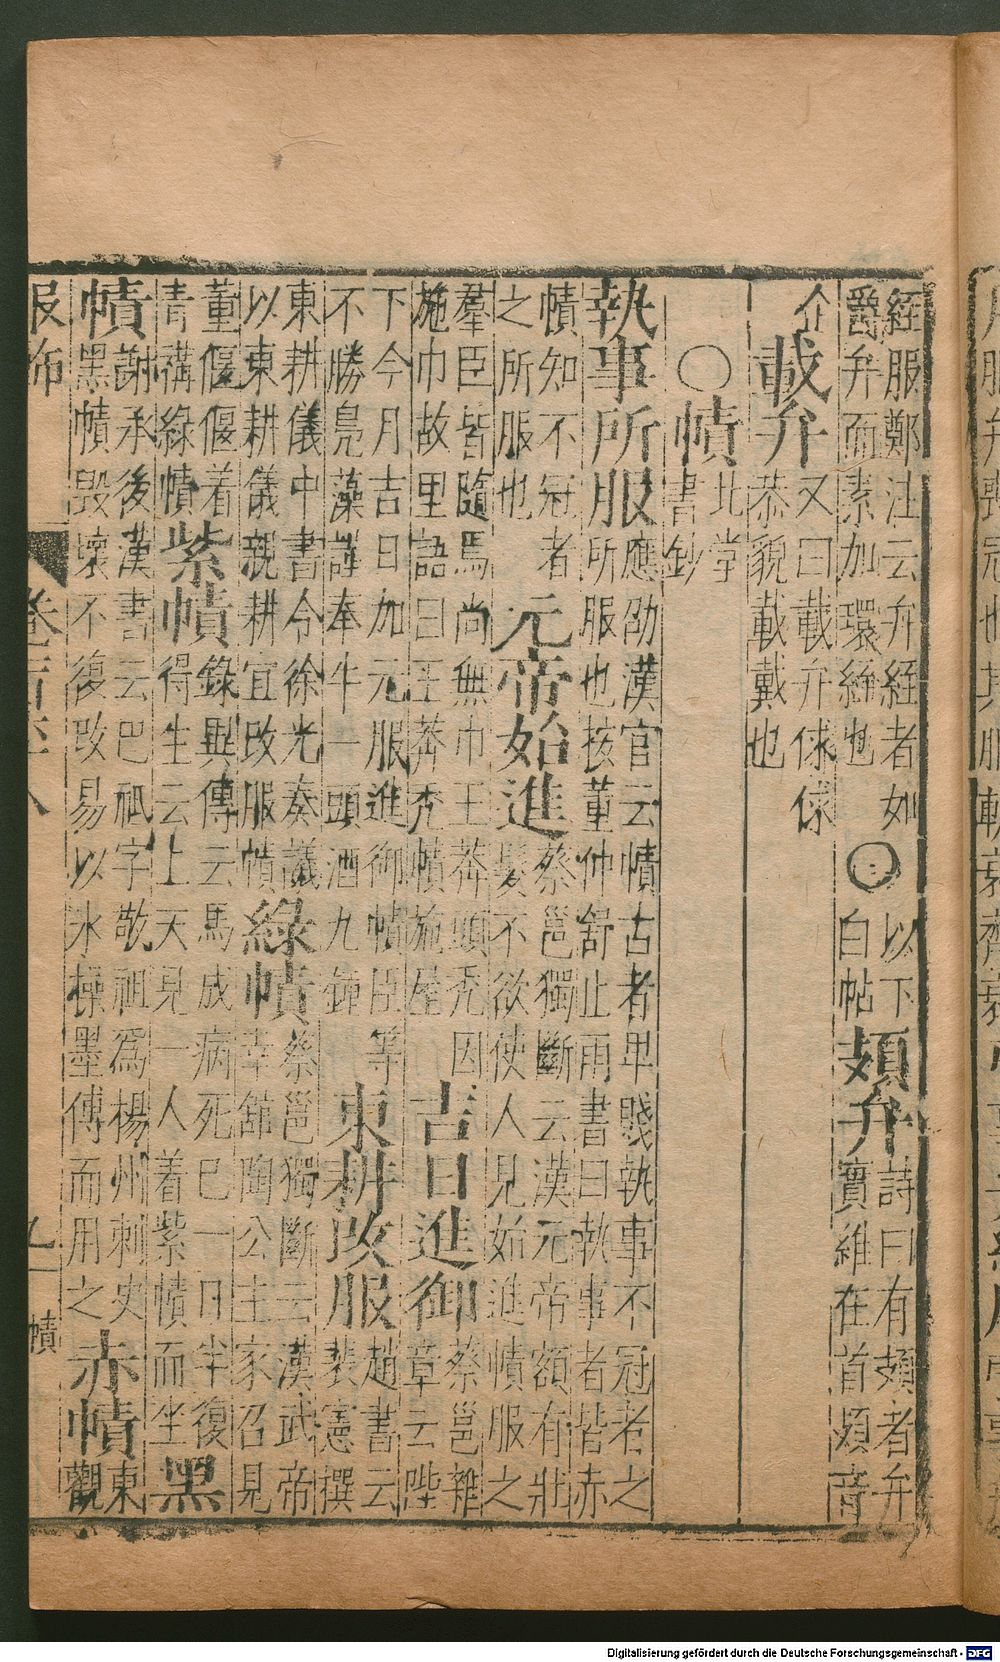 絰服鄭注云弁絰者如
爵弁而素加環絰也
○
以下
白帖
頍弁
詩曰有頍者弁
實維在首頍音
载弁
又曰載弁俅俅
恭貌載戴也
○幘
北堂
書鈔
執事所服
應劭漢官云幘古者卑賤執事不冠者之
所服也按董仲舒止雨書曰執事者皆赤
幘知不冠者
之所服也
元帝始進
蔡邕獨斷云漢元帝額有壯
髮不欲使人見始進幘服之
羣臣皆隨焉尚無巾王莽頭禿因
施巾故里語曰王莽禿幘施屋
吉日進御
蔡邕雜
章云陛
下今月吉日加元服進御幘臣等
不勝鳧藻謹奉牛一頭酒九鍾
東耕改服
趙書云
裴憲撰
東耕儀中書令徐光奏議
以東耕儀親耕宜改服幘
綠幘
蔡邕獨斷云漢武帝
幸館陶公主家召見
董偃偃着
青褠綠幘
紫幘
錄異傳云馬成病死巳一日半復
得生云上天見一人着紫幘而坐
黑
幘
謝承後漢書云巴祇字敬祖爲楊州刺史
黑幘毀壞不復改易以水操墨傅而用之
赤幘
東
觀
服飾
九
幘
Digitalisierung gefördert durch die Deutsche Forschungsgemeinschaft - DFG